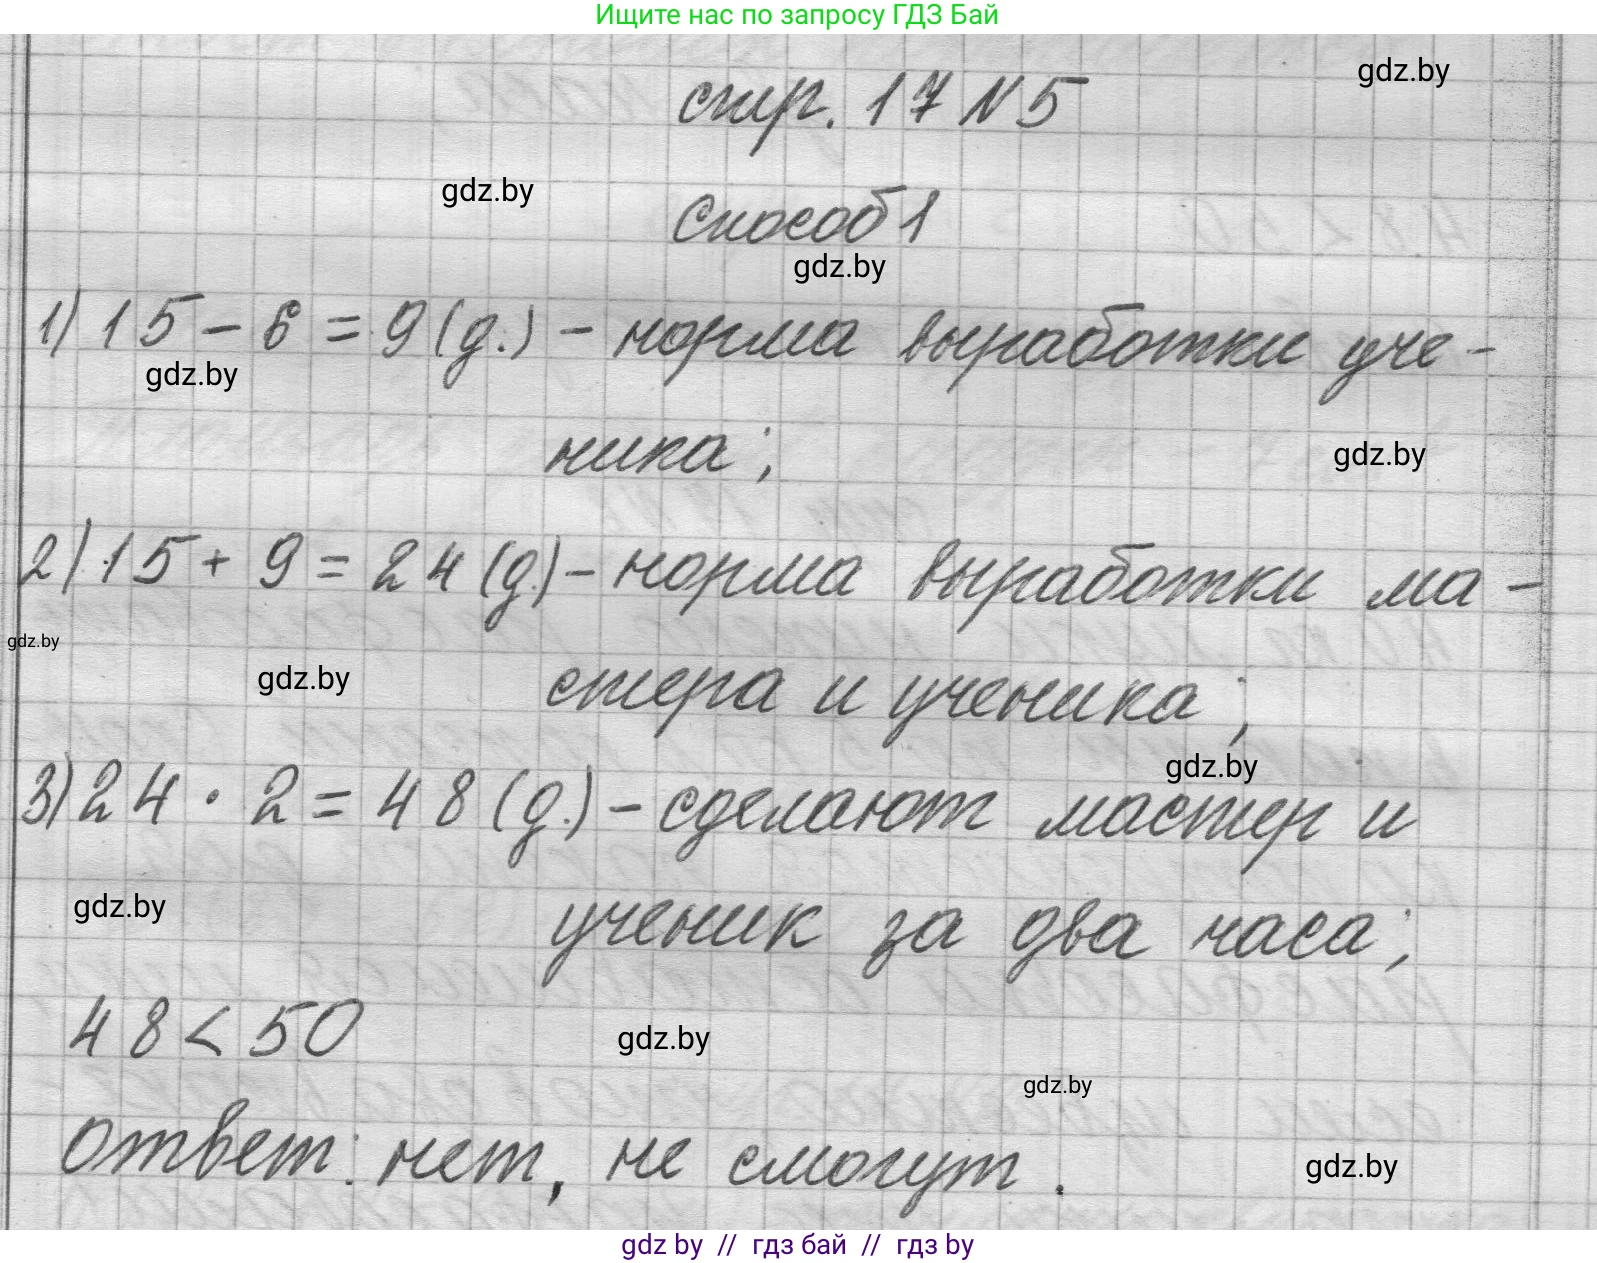 Ищите нас по запросу ГДЗ Бай
gdz.by
стр. 17 N 5
gdz.by
Способ 1
gdz.by
1) 15 - 6 = 9 (д.) - норма выработки уче -
gdz.by
ника ;
gdz.by
2) 15 + 9 = 24 (д.) - норма выработки ма -
gdz.by
стера и ученика ;
gdz.by
gdz.by
3) 24 · 2 = 48 (д.) - сделают мастер и
gdz.by
ученик за два часа ;
48 < 50
gdz.by
gdz.by
Ответ: нет, не смогут .
gdz.by
gdz by // гдз бай // гдз by